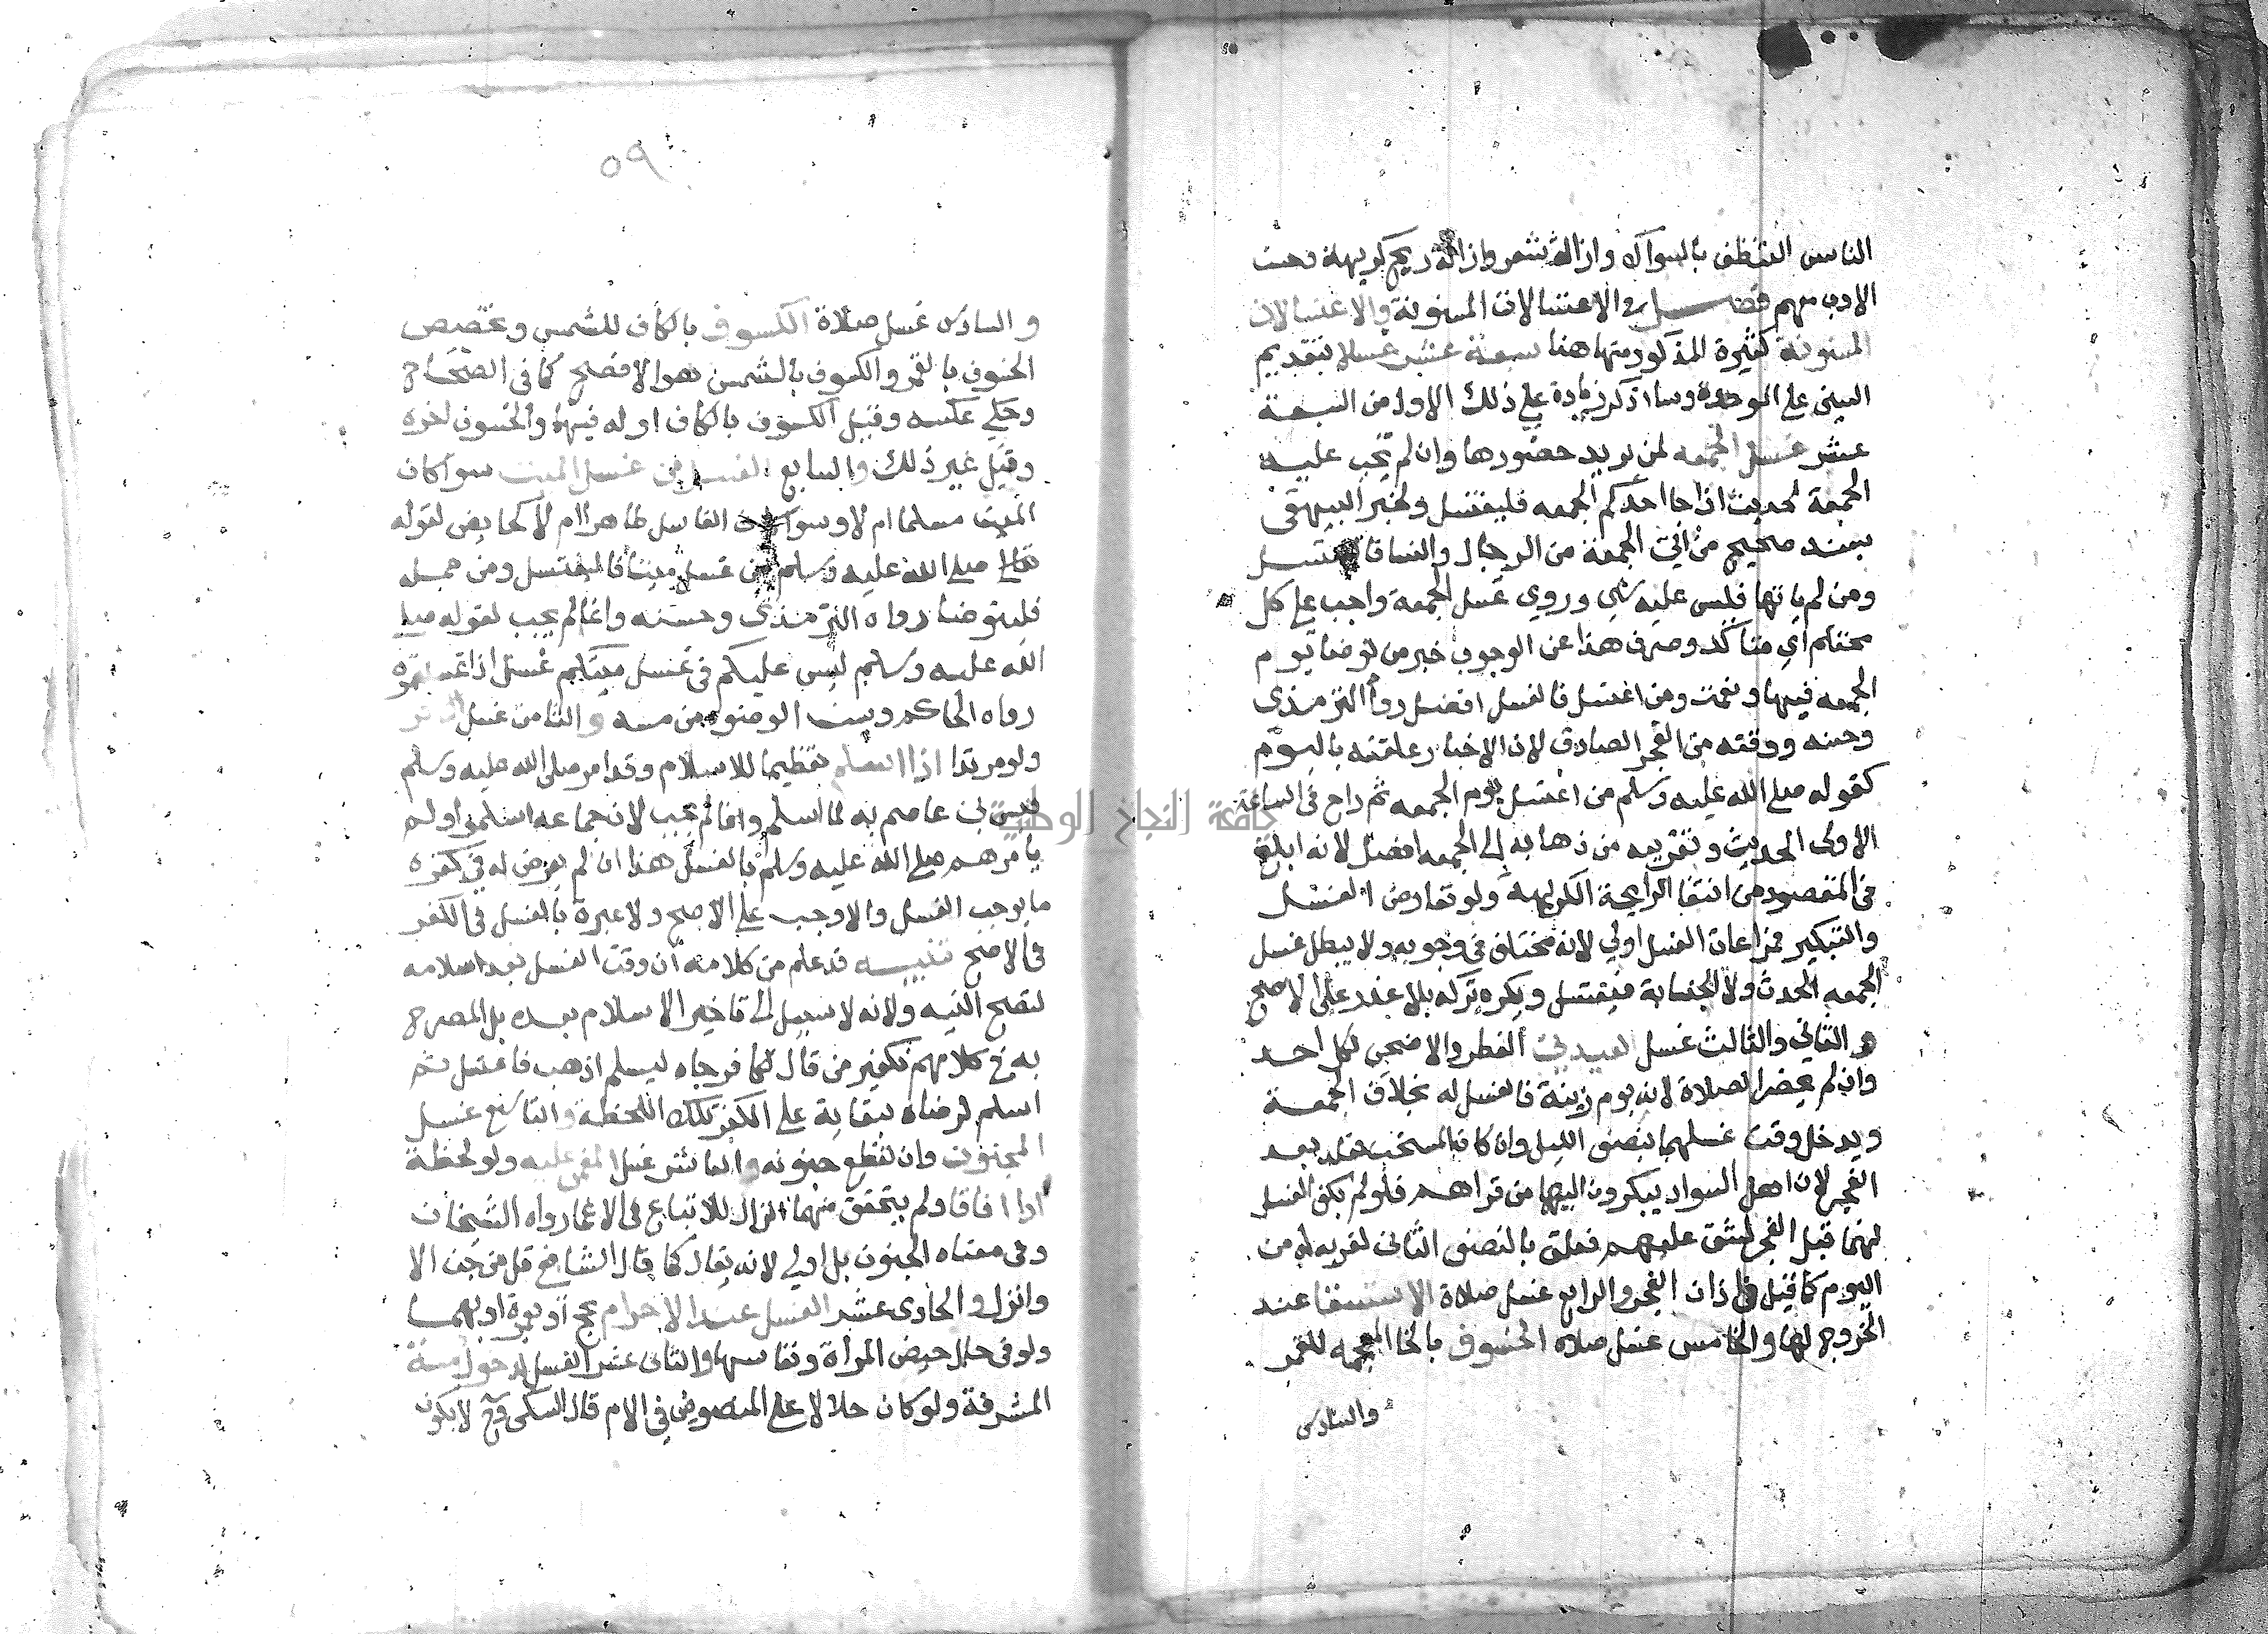 الناس التنظف بالسواك وازالة شعر وازالة ريح كريهة وحسن
الادب معهم فصل في الاغتسالات المسنونة والاغتسالات
المسنونة كثيرة المذكور منها هنا سبعة عشر غسلا بتقديم
السين على الموحدة وساذكر زيادة على ذلك الاول من السبعة
عشر غسل الجمعه لمن يريد حضورها وان لم تجب عليه
الجمعة لحديث اذا جا احدكم الجمعه فليغتسل ولخبر البيهقي
بسند صحيح من اتى الجمعة من الرجال والنسا فليغتسل
ومن لم ياتها فليس عليه شي وروي غسل الجمعة واجب على كل
محتلم اي متاكد وصرف هذا عن الوجوب خبر من توضا يوم
الجمعه فبها ونعمت ومن اغتسل فالغسل افضل رواه الترمذي
وحسنه ووقته من الفجر الصادق لان الاخبار علقته باليوم
كقوله صلى الله عليه وسلم من اغتسل يوم الجمعه ثم راح في الساعة
الاولى الحديث وتقريبه من ذهابه الى الجمعه افضل لانه ابلغ
في المقصود من انتفا الرايحة الكريهة ولو تعارض الغسل
والتبكير فمراعاة الغسل اولي لانه مختلف في وجوبه ولا يبطل غسل
الجمعه الحدث ولا الجنابة فيغتسل ويكره تركه بلا عذر على الاصح
والثاني والثالث غسل العيدين الفطر والاضحى لكل احد
وان لم يحضر الصلاة لانه يوم زينة فالغسل له بخلاف الجمعة
ويدخل وقت غسلهما بنصف الليل وان كان المستحب فعله بعد
الفجر لان اهل السواد يبكرون اليهما من قراهم فلو لم يكف الغسل
لهما قبل الفجر لشق عليهم فعلق بالنصف الثاني لقربه من
اليوم كما قيل في اذان الفجر والرابع غسل صلاة الاستسقا عند
الخروج لها والخامس غسل صلاه الخسوف بالخا المعجمه للقمر
والسادس
٥٩
والسادس غسل صلاة الكسوف بالكاف للشمس وتخصيص
الخسوف بالقمر والكسوف بالشمس هو الافصح كما في الصحاح
وحكي عكسه وقيل الكسوف بالكاف اوله فيهما والخسوف اخره
وقيل غير ذلك والسابع الغسل من غسل الميت سوا كان
الميت مسلما ام لا وسوا كان الغاسل طاهرا ام لا كحايض لقوله
صلى الله عليه وسلم من غسل ميتا فليغتسل ومن حمله
فليتوضا رواه الترمذي وحسنه وانما لم يجب لقوله صلى
الله عليه وسلم ليس عليكم في غسل ميتكم غسل اذا غسلتموه
رواه الحاكم ويسن الوضوء من مسه والثامن غسل الكافر
ولو مرتدا اذا اسلم تعظيما للاسلام وقد امر صلى الله عليه وسلم
قيس بن عاصم به لما اسلم وانما لم يجب لان جماعه اسلموا ولم
يامرهم صلى الله عليه وسلم بالغسل هذا ان لم يعرض له في كفره
ما يوجب الغسل والا وجب على الاصح ولا عبرة بالغسل في الكفر
في الاصح تنبيه قد علم من كلامه ان وقت الغسل بعد اسلامه
لتصح النيه ولانه لا سبيل الى تاخير الاسلام بعده بل المصرح
به في كلامهم تكفير من قال لكافر جاه ليسلم اذهب فاغتسل ثم
اسلم لرضاه ببقايه على الكفر تلك اللحظة والتاسع غسل
المجنون وان تقطع جنونه والعاشر غسل المغمى عليه ولو لحظة
اذا افاقا ولم يتحقق منهما انزال للاتباع في الاغما رواه الشيخان
وفي معناه الجنون بل اولي لانه يقال كما قال الشافعي قل من جن الا
وانزل والحادى عشر الغسل عند الاحرام بحج او عمرة او بهما
ولو في حال حيض المرأة ونفاسها والثاني عشر الغسل لدخول مكة
المشرفة ولو كان حلالا على المنصوص في الام قال السبكي وح لا يكون